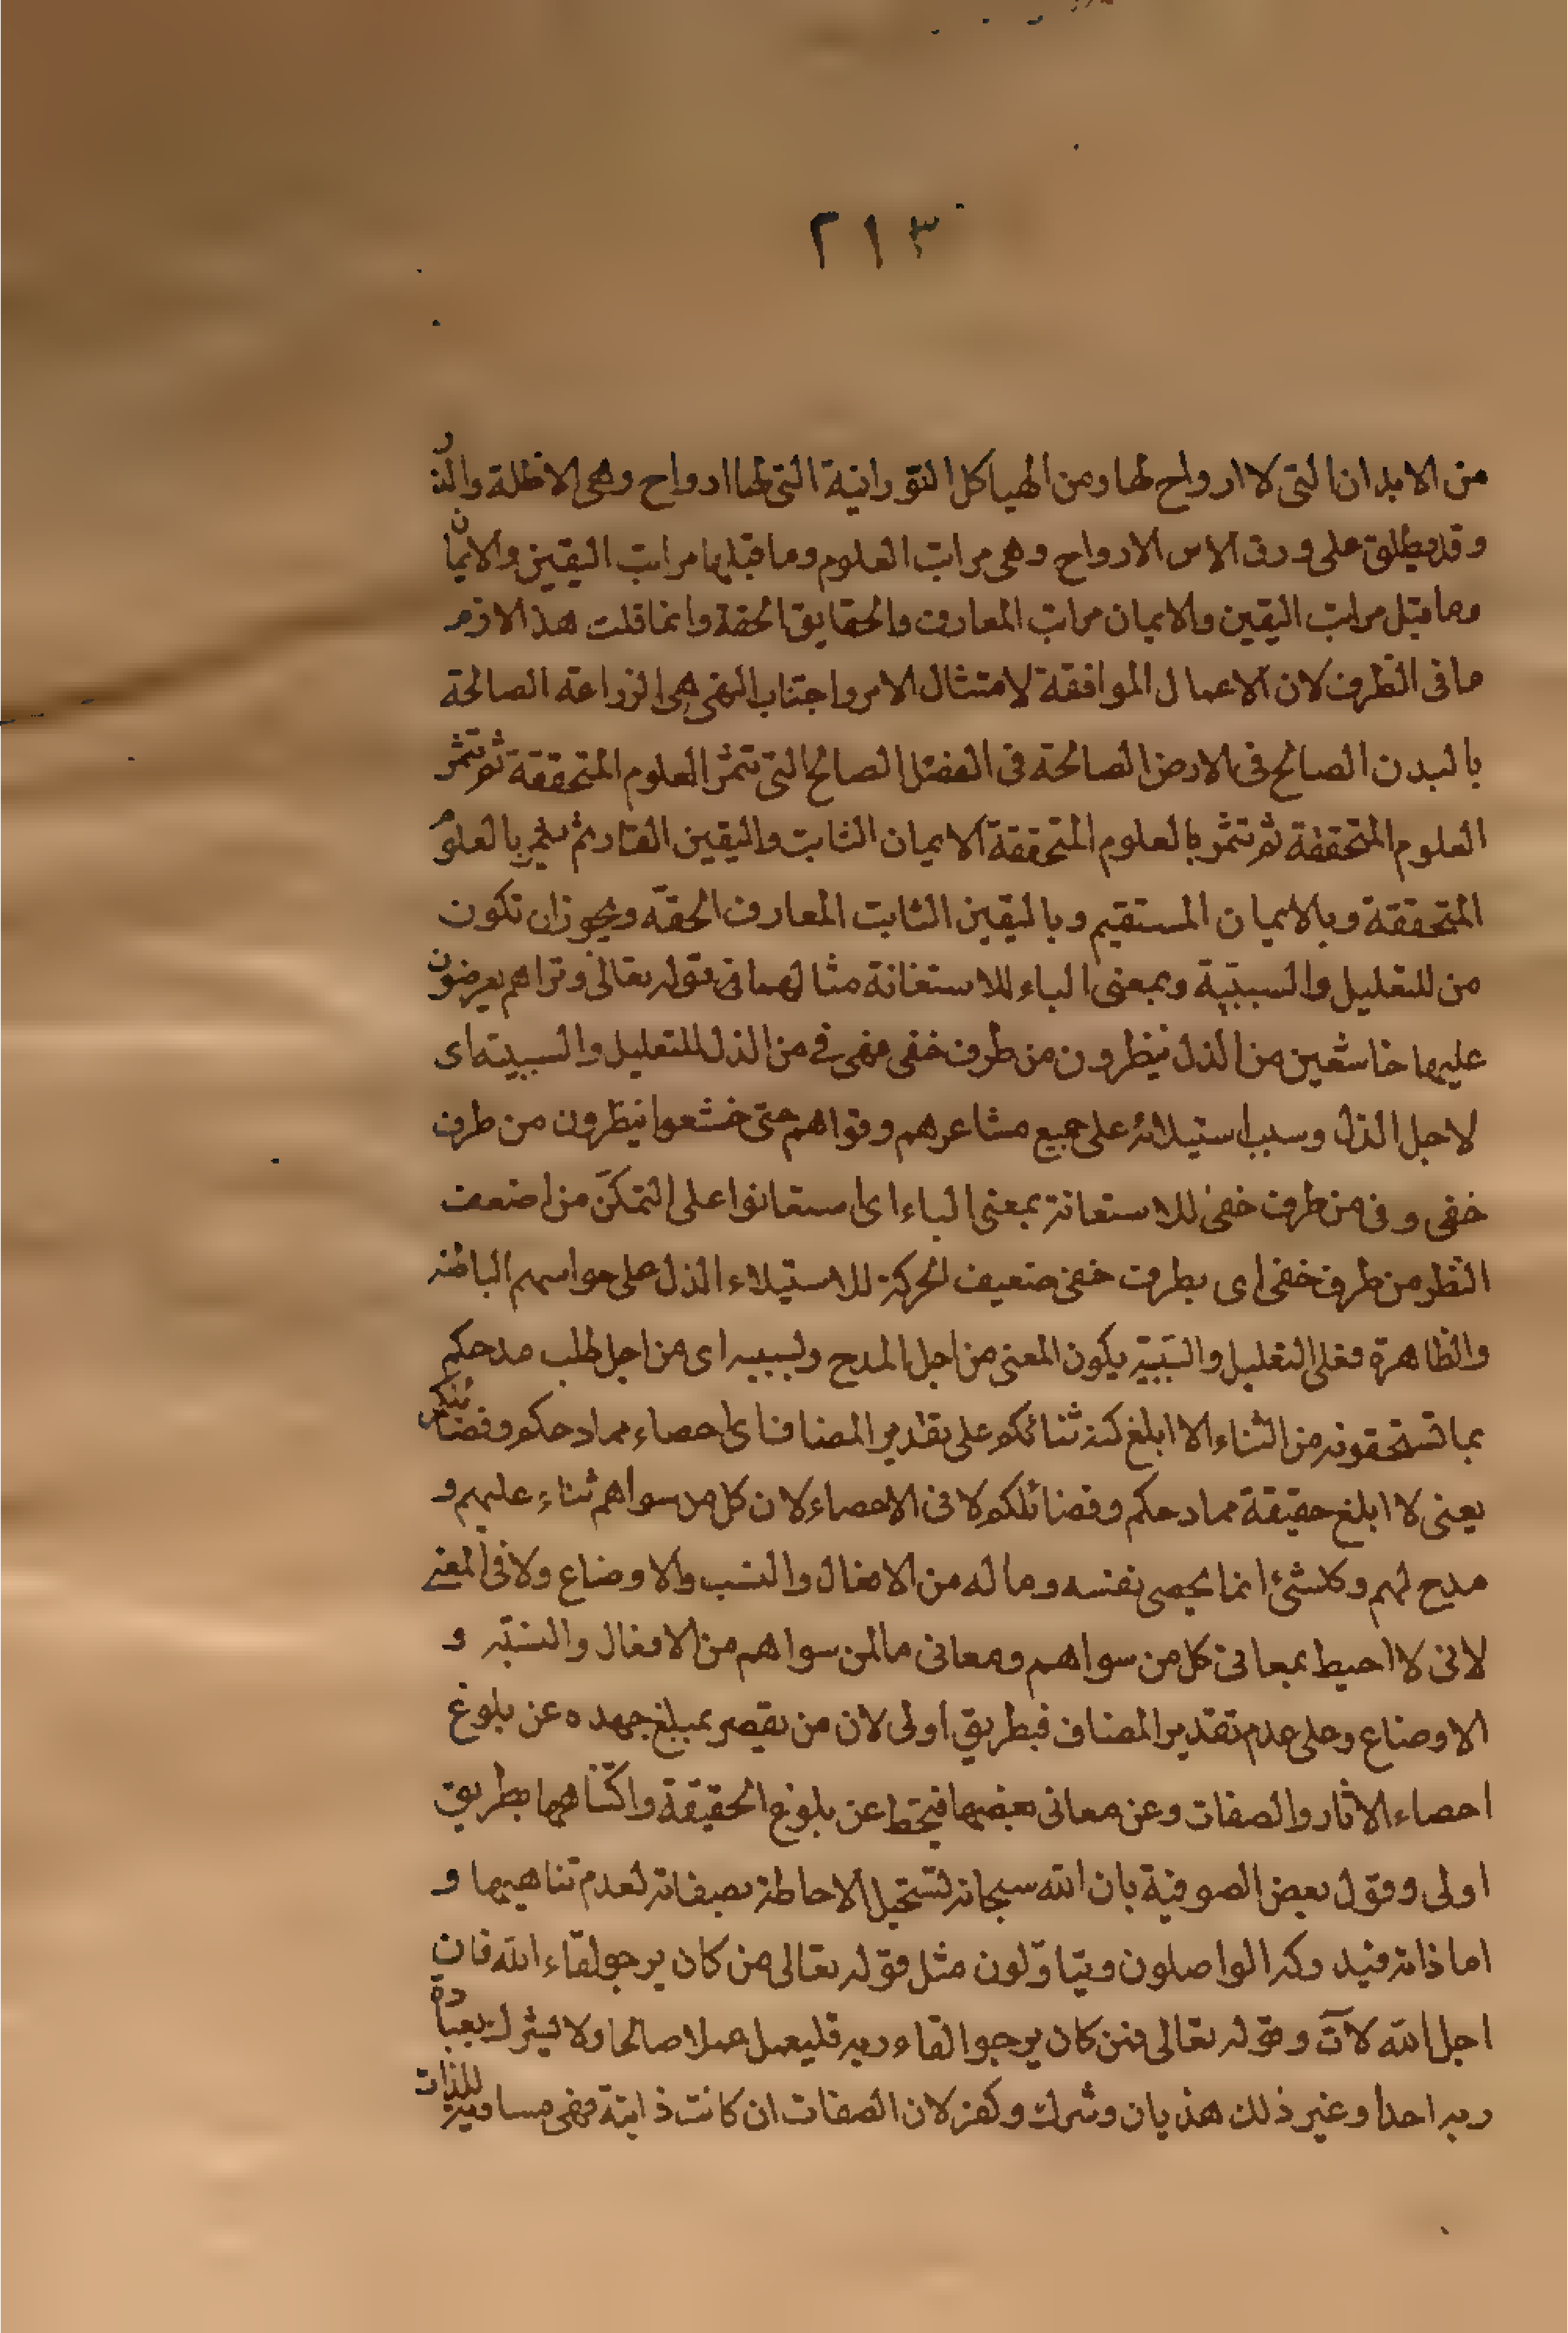 ٢١٣
من الابدان التى لا ارواح لها ومن الهياكل النورانية التى لها ارواح وهى الاظلة والذر
وقد يطلق على ورق الاس الارواح وهى مراتب العلوم وما قبلها مراتب اليقين والايمان
وما قبل مراتب اليقين والايمان مراتب المعارف والحقايق الحقة وانما قلت هذا لازم
ما فى الظرف لان الاعمال الموافقة لامتثال الامر واجتناب النهى هى الزراعة الصالحة
بالبدن الصالح فى الارض الصالحة فى الفصل الصالح التى تثمر العلوم المتحققة ثم تثمر
العلوم المتحققة ثم تثمر بالعلوم المتحققة الايمان الثابت واليقين القار ثم يثمر بالعلوم
المتحققة وبالايمان المستقيم وباليقين الثابت المعارف الحقة ويجوز ان تكون
من للتعليل والسببية وبمعنى الباء للاستعانة مثالهما فى قوله تعالى وتراهم يعرضون
عليها خاشعين من الذل ينظرون من طرف خفى فهى فى من الذل للتعليل والسببية اى
لاجل الذل وسبب استيلائه على جميع مشاعرهم وقواهم حتى خشعوا ينظرون من طرف
خفى وفى من طرف خفى للاستعانة بمعنى الباء اى استعانوا على التمكن من اضعف
النظر من طرف خفى اى بطرف خفى ضعيف الحركة للاستيلاء الذل على حواسهم الباطنه
والظاهرة فعلى التعليل والسببية يكون المعنى من اجل المدح ولسببه اى من اجل طلب مدحكم
بما تستحقونه من الثناء لا ابلغ كنه ثنائكم على تقدير المضاف اى احصاء ممادحكم وفضائلكم
يعنى لا ابلغ حقيقة ممادحكم وفضائلكم لا فى الاحصاء لان كل من سواهم ثناء عليهم و
مدح لهم وكلشئ انما يحصى نفسه وما له من الافعال والنسب والاوضاع ولا فى المعنى
لانى لا احيط بمعانى كل من سواهم ومعانى ما لمن سواهم من الافعال والنسبة و
الاوضاع وعلى عدم تقدير المضاف فبطريق اولى لان من يقصر بمبلغ جهده عن بلوغ
احصاء الاثار والصفات وعن معانى بعضها فينحط عن بلوغ الحقيقة واكتناهها بطريق
اولى وقول بعض الصوفية بان الله سبحانه تستحيل الاحاطة بصفاته لعدم تناهيها و
اما ذاته فيدركه الواصلون ويتاولون مثل قوله تعالى من كان يرجو لقاء الله فان
اجل الله لآت وقوله تعالى فمن كان يرجوا لقاء ربه فليعمل عملا صالحا ولا يشرك بعبادة
ربه احدا وغير ذلك هذيان وشرك وكفر لان الصفات ان كانت ذاتية فهى مساوية للذات